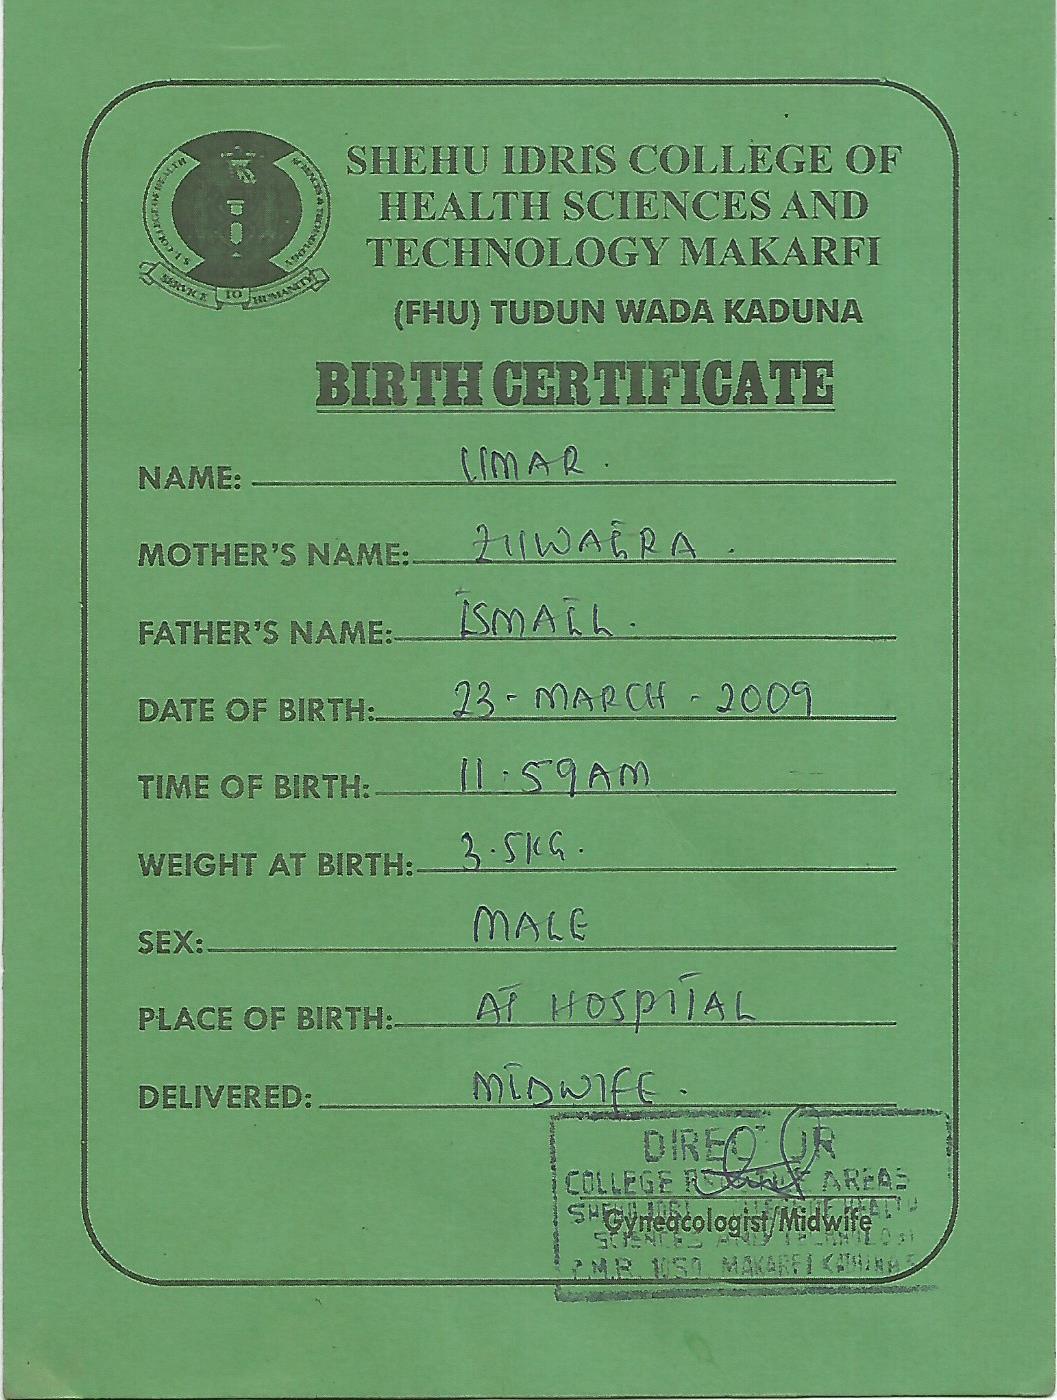 SHEHU IDRIS COLLEGE OF
HEALTH SCIENCES AND
TECHNOLOGY MAKARFI
(FHU) TUDUN WADA KADUNA
SERVICE TO HUMANITY
BIRTH CERTIFICATE
NAME: UMAR.
MOTHER'S NAME: ZUWAIRA.
FATHER'S NAME: ISMAIL.
DATE OF BIRTH: 23-MARCH-2009
TIME OF BIRTH: 11.59AM
WEIGHT AT BIRTH: 3.5KG.
SEX: MALE
PLACE OF BIRTH: AT HOSPITAL
DELIVERED: MIDWIFE.
DIRECTOR
COLLEGE AREAS
Gyneacologist/Midwife
SCIENCES AND TECHNOLOGY
P.M.B. 1050 MAKARFI